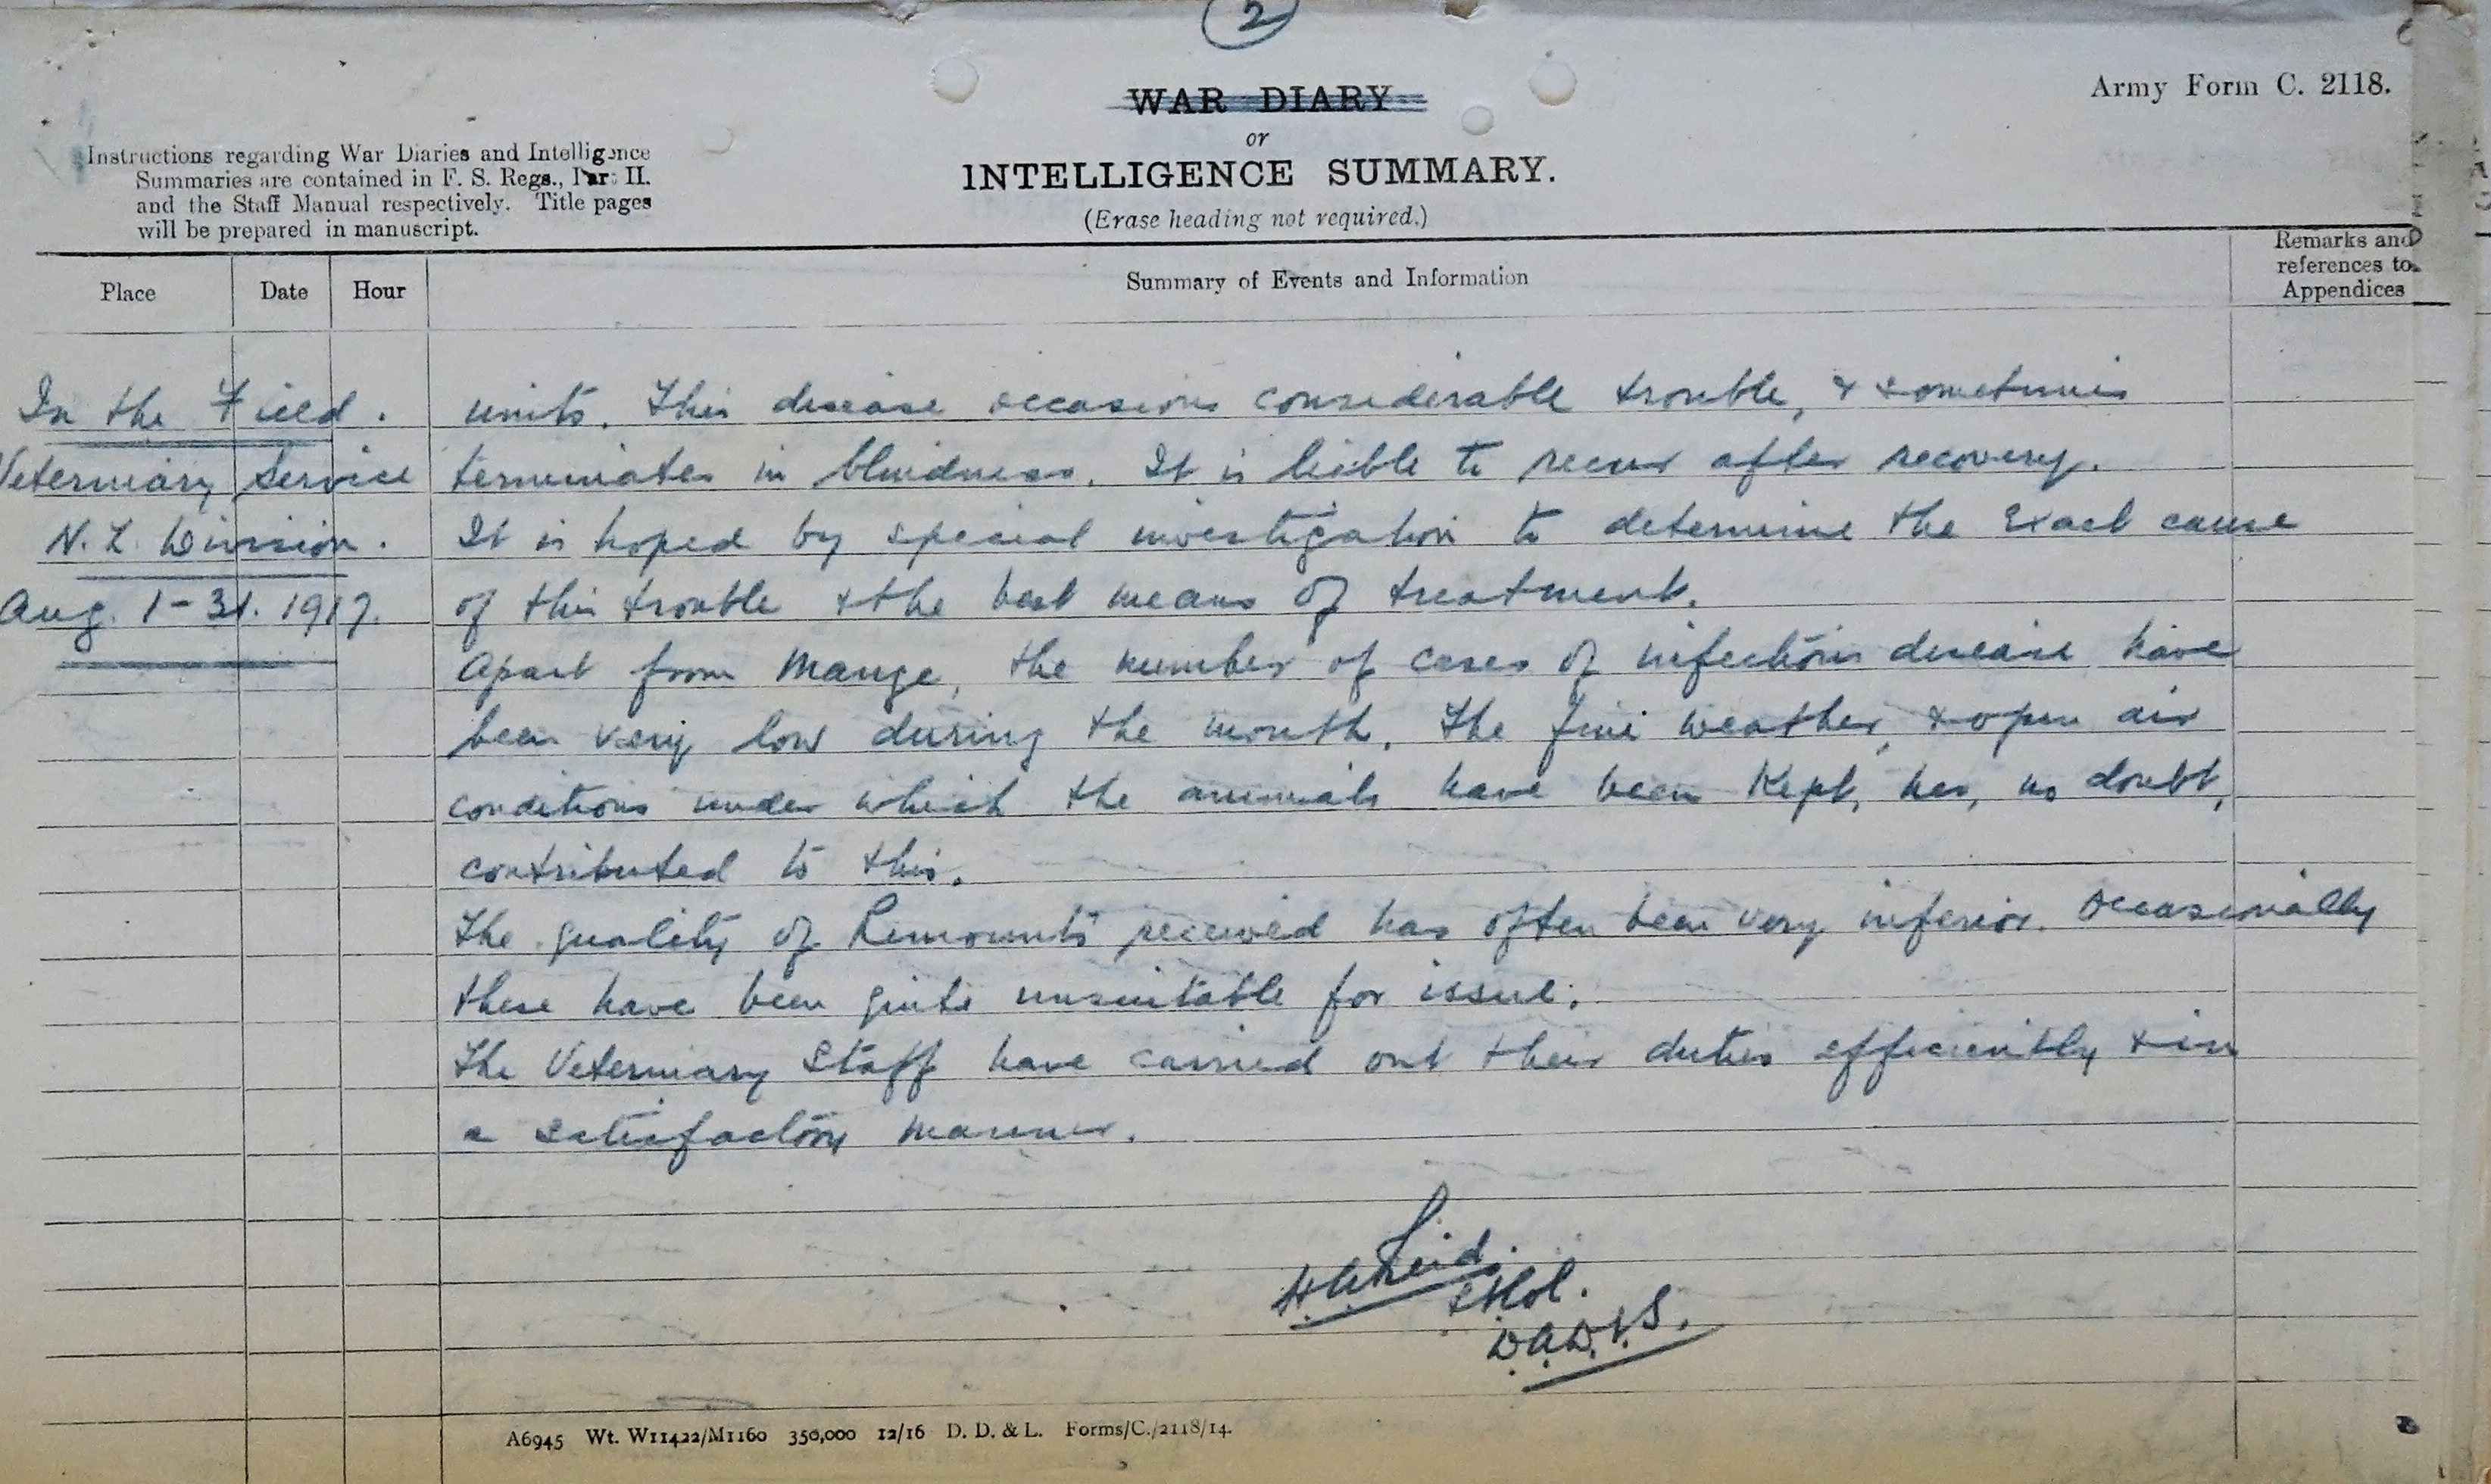 2
WAR DIARY
or
INTELLIGENCE SUMMARY.
(Erase heading not required.)
Army Form C. 2118.
Instructions regarding War Diaries and Intelligence
Summaries are contained in F. S. Regs., Part II.
and the Staff Manual respectively. Title pages
will be prepared in manuscript.
Place
Date
Hour
Summary of Events and Information
Remarks and
references to
Appendices
In the Field.
Veterinary Service
N.Z. Division.
Aug. 1-31. 1917.
units. This disease occasions considerable trouble, & sometimes
terminates in blindness. It is liable to recur after recovery.
It is hoped by special investigation to determine the exact cause
of this trouble & the best means of treatment.
Apart from Mange, the number of cases of infectious disease have
been very low during the month. The fine weather, & open air
conditions under which the animals have been kept, has, no doubt,
contributed to this.
The quality of Remounts received has often been very inferior. Occasionally
these have been quite unsuitable for issue.
The Veterinary Staff have carried out their duties efficiently & in
a satisfactory manner.
H.A. Reid.
D.A.D.V.S.
A6945 Wt. W11422/M1160 350,000 12/16 D. D. & L. Forms/C./2118/14.